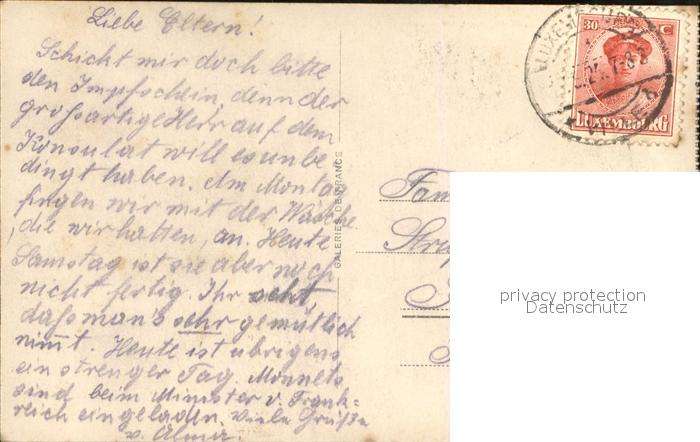 Liebe Eltern!
Schickt mir doch bitte
den Impfschein, denn der
großartige Herr auf dem
Konsulat will es unbe
dingt haben. Am Montag
fingen wir mit der Wäsche
, die wir hatten, an. Heute
Samstag ist sie aber noch
nicht fertig. Ihr seht,
dass man's sehr gemütlich
nimmt. Heute ist übrigens
ein strenger Tag. Monnets
sind beim Minister v. Frank-
reich eingeladen. Viele Grüße
v. Alma.
GALERIES DE FRANCE
30 C
LUXEMBOURG
Fam
privacy protection
Datenschutz